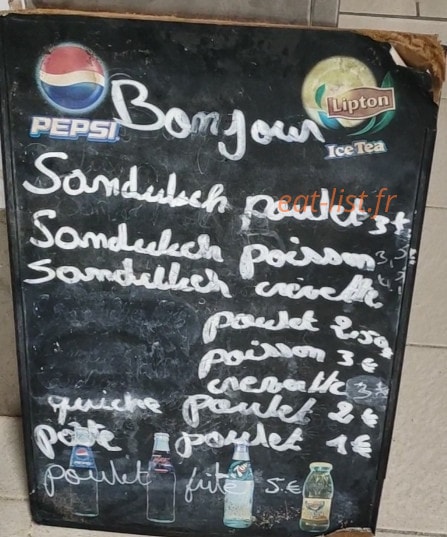 PEPSI
Bonjour
Lipton
Ice Tea
eat-list.fr
Sandwich poulet 3€
Sandwich poisson
Sandwich crevette
poulet 2,50€
poisson 3€
crevette
quiche poulet 2€
pâte poulet 1€
poulet frite 5€